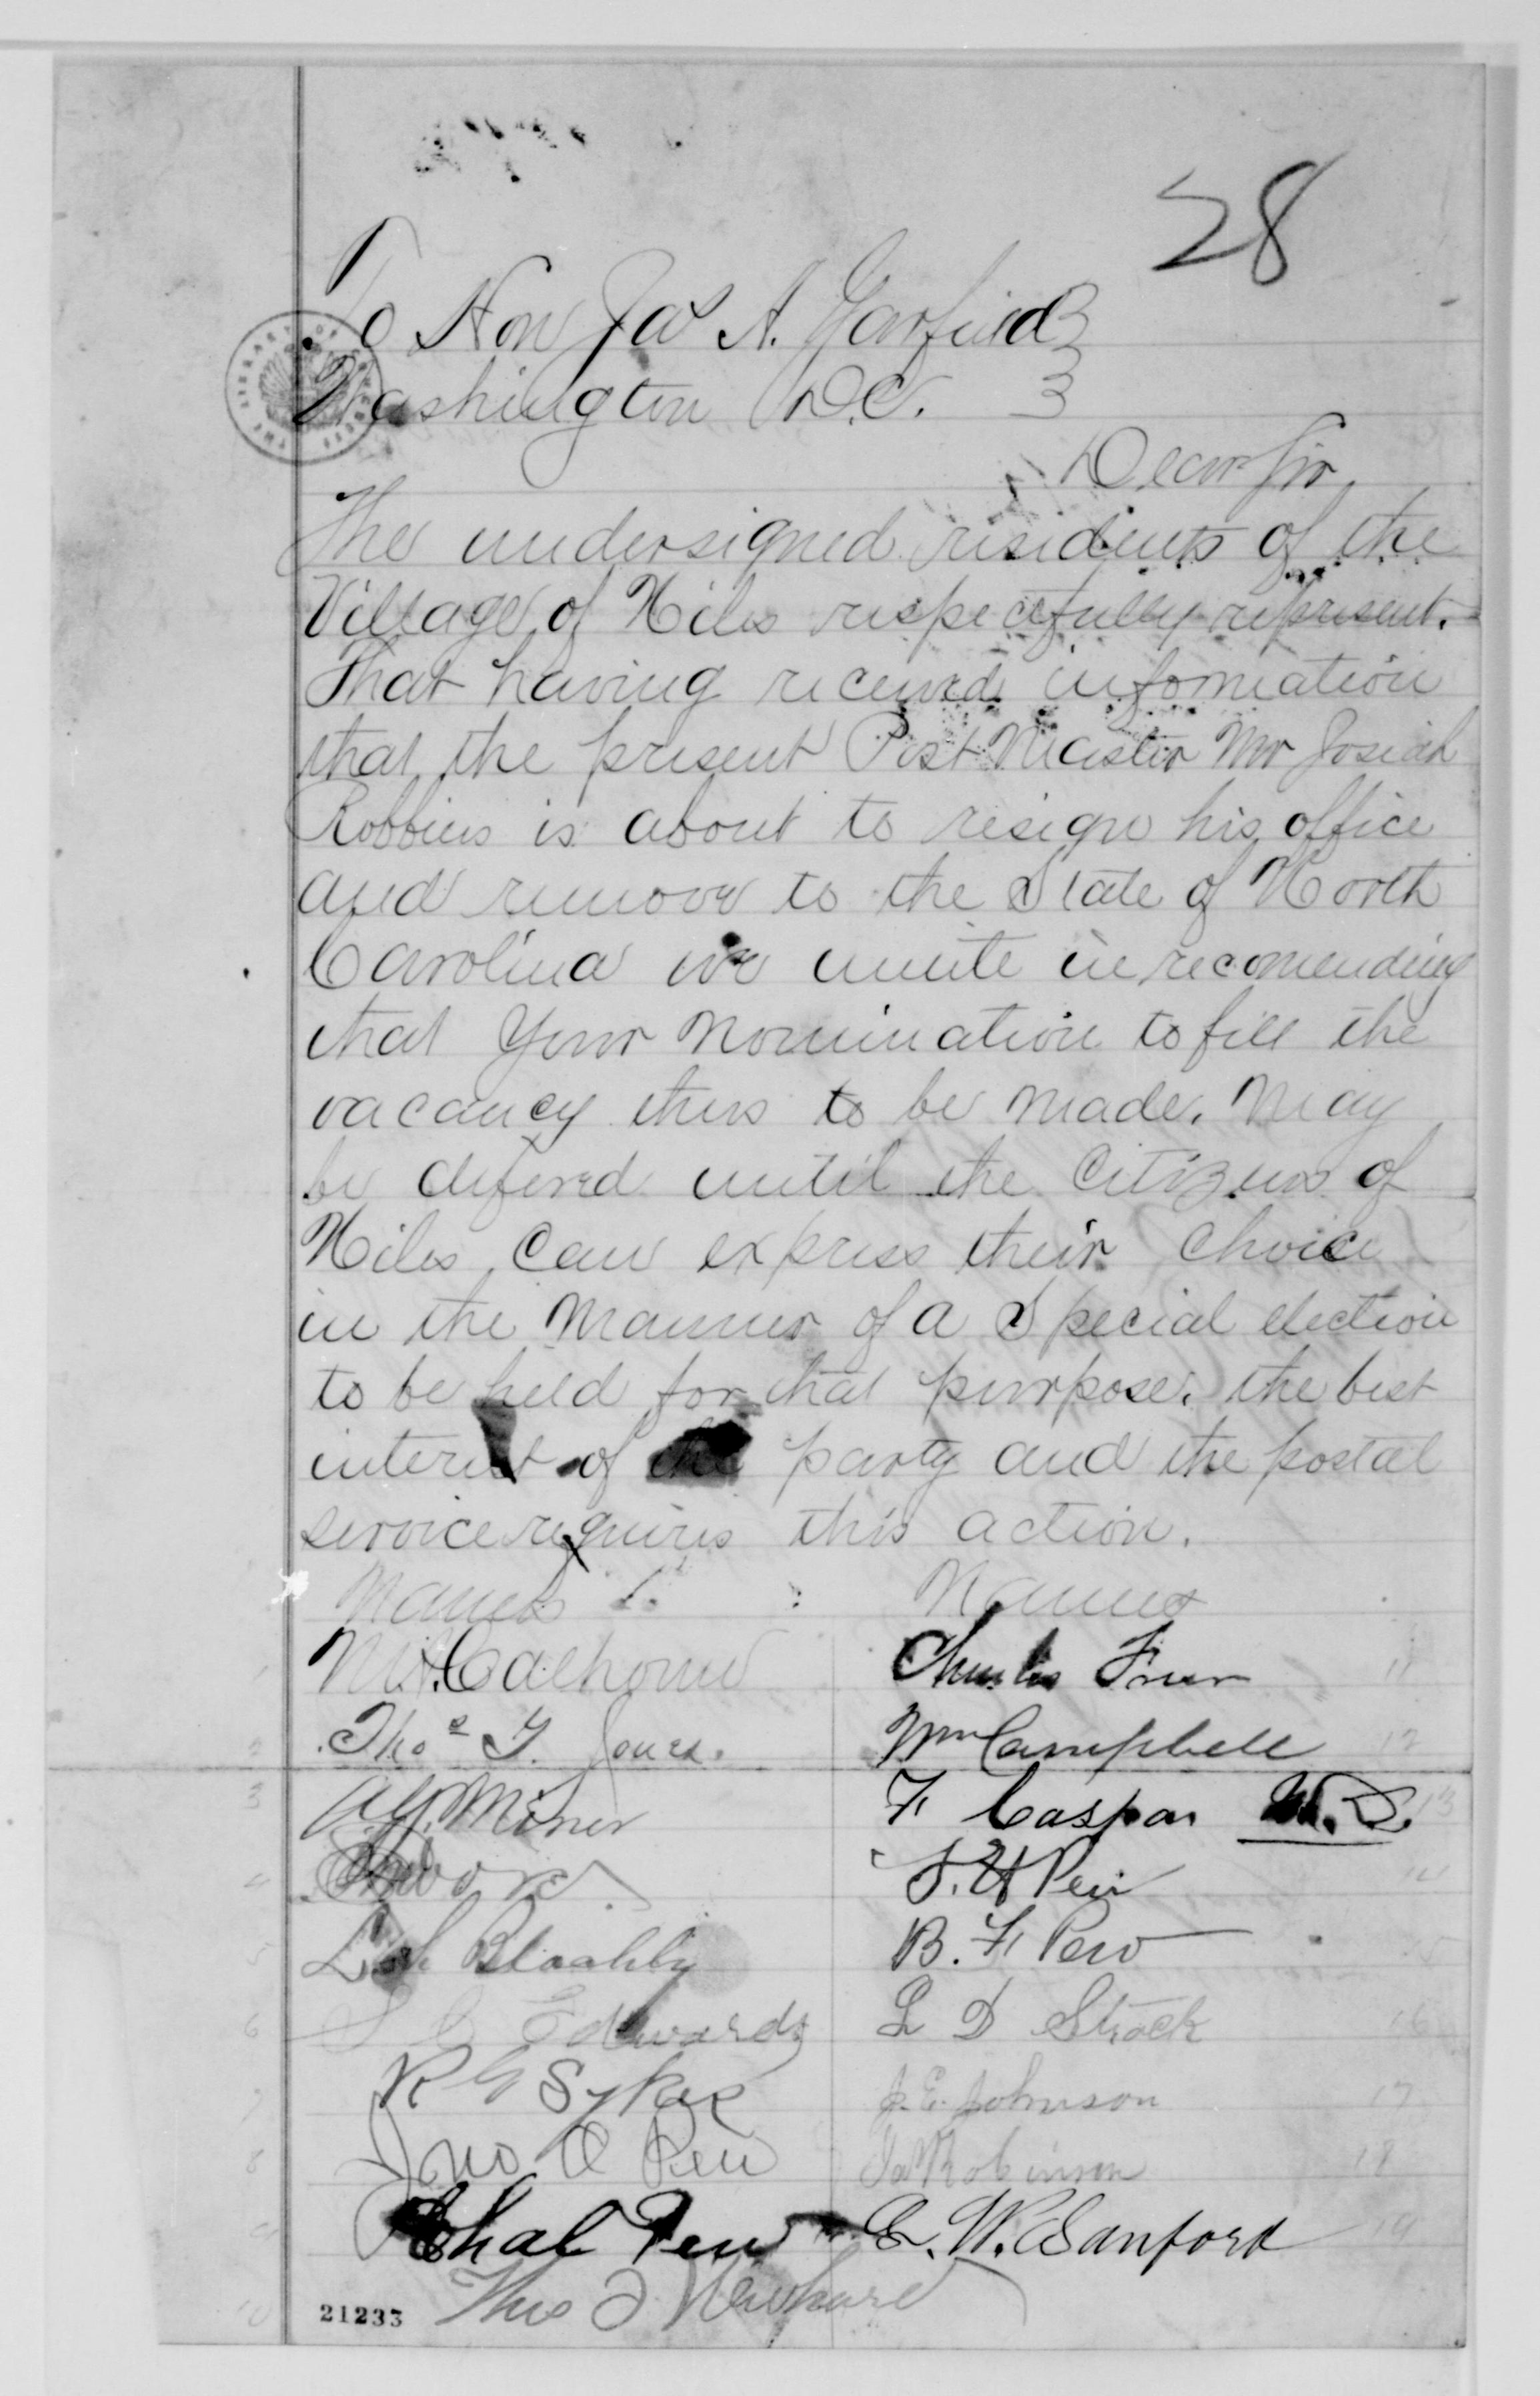 28
To Hon Jas A. Garfield
Washington D.C.
Dear Sir
The undersigned residents of the
Village of Niles respectfully represent.
That having received infomation
that the present Post Master Mr Josiah
Robbins is about to resign his office
and remove to the State of North
Carolina we unite in recomending
that Your nomination to fill the
vacancy thus to be made. May
be defered until the Citizens of
Niles can express their choice
in the manner of a Special election
to be held for that purpose. the best
interest of the party and the postal
service requires this action.
Names
Names
Calhoun
Charles
11
Thos J. Jones.
Wm Campbell
2
12
Miner
F Caspar M.D.
3
13
4
14
L
B. F Pew
5
15
S C Edwards
L D Strock
6
16
R G Sykes
J. E. Johnson
7
17
Jno. A Pew
Robinson
8
18
Chal Pew
C. W. Sanford
9
19
Thos
10
21233